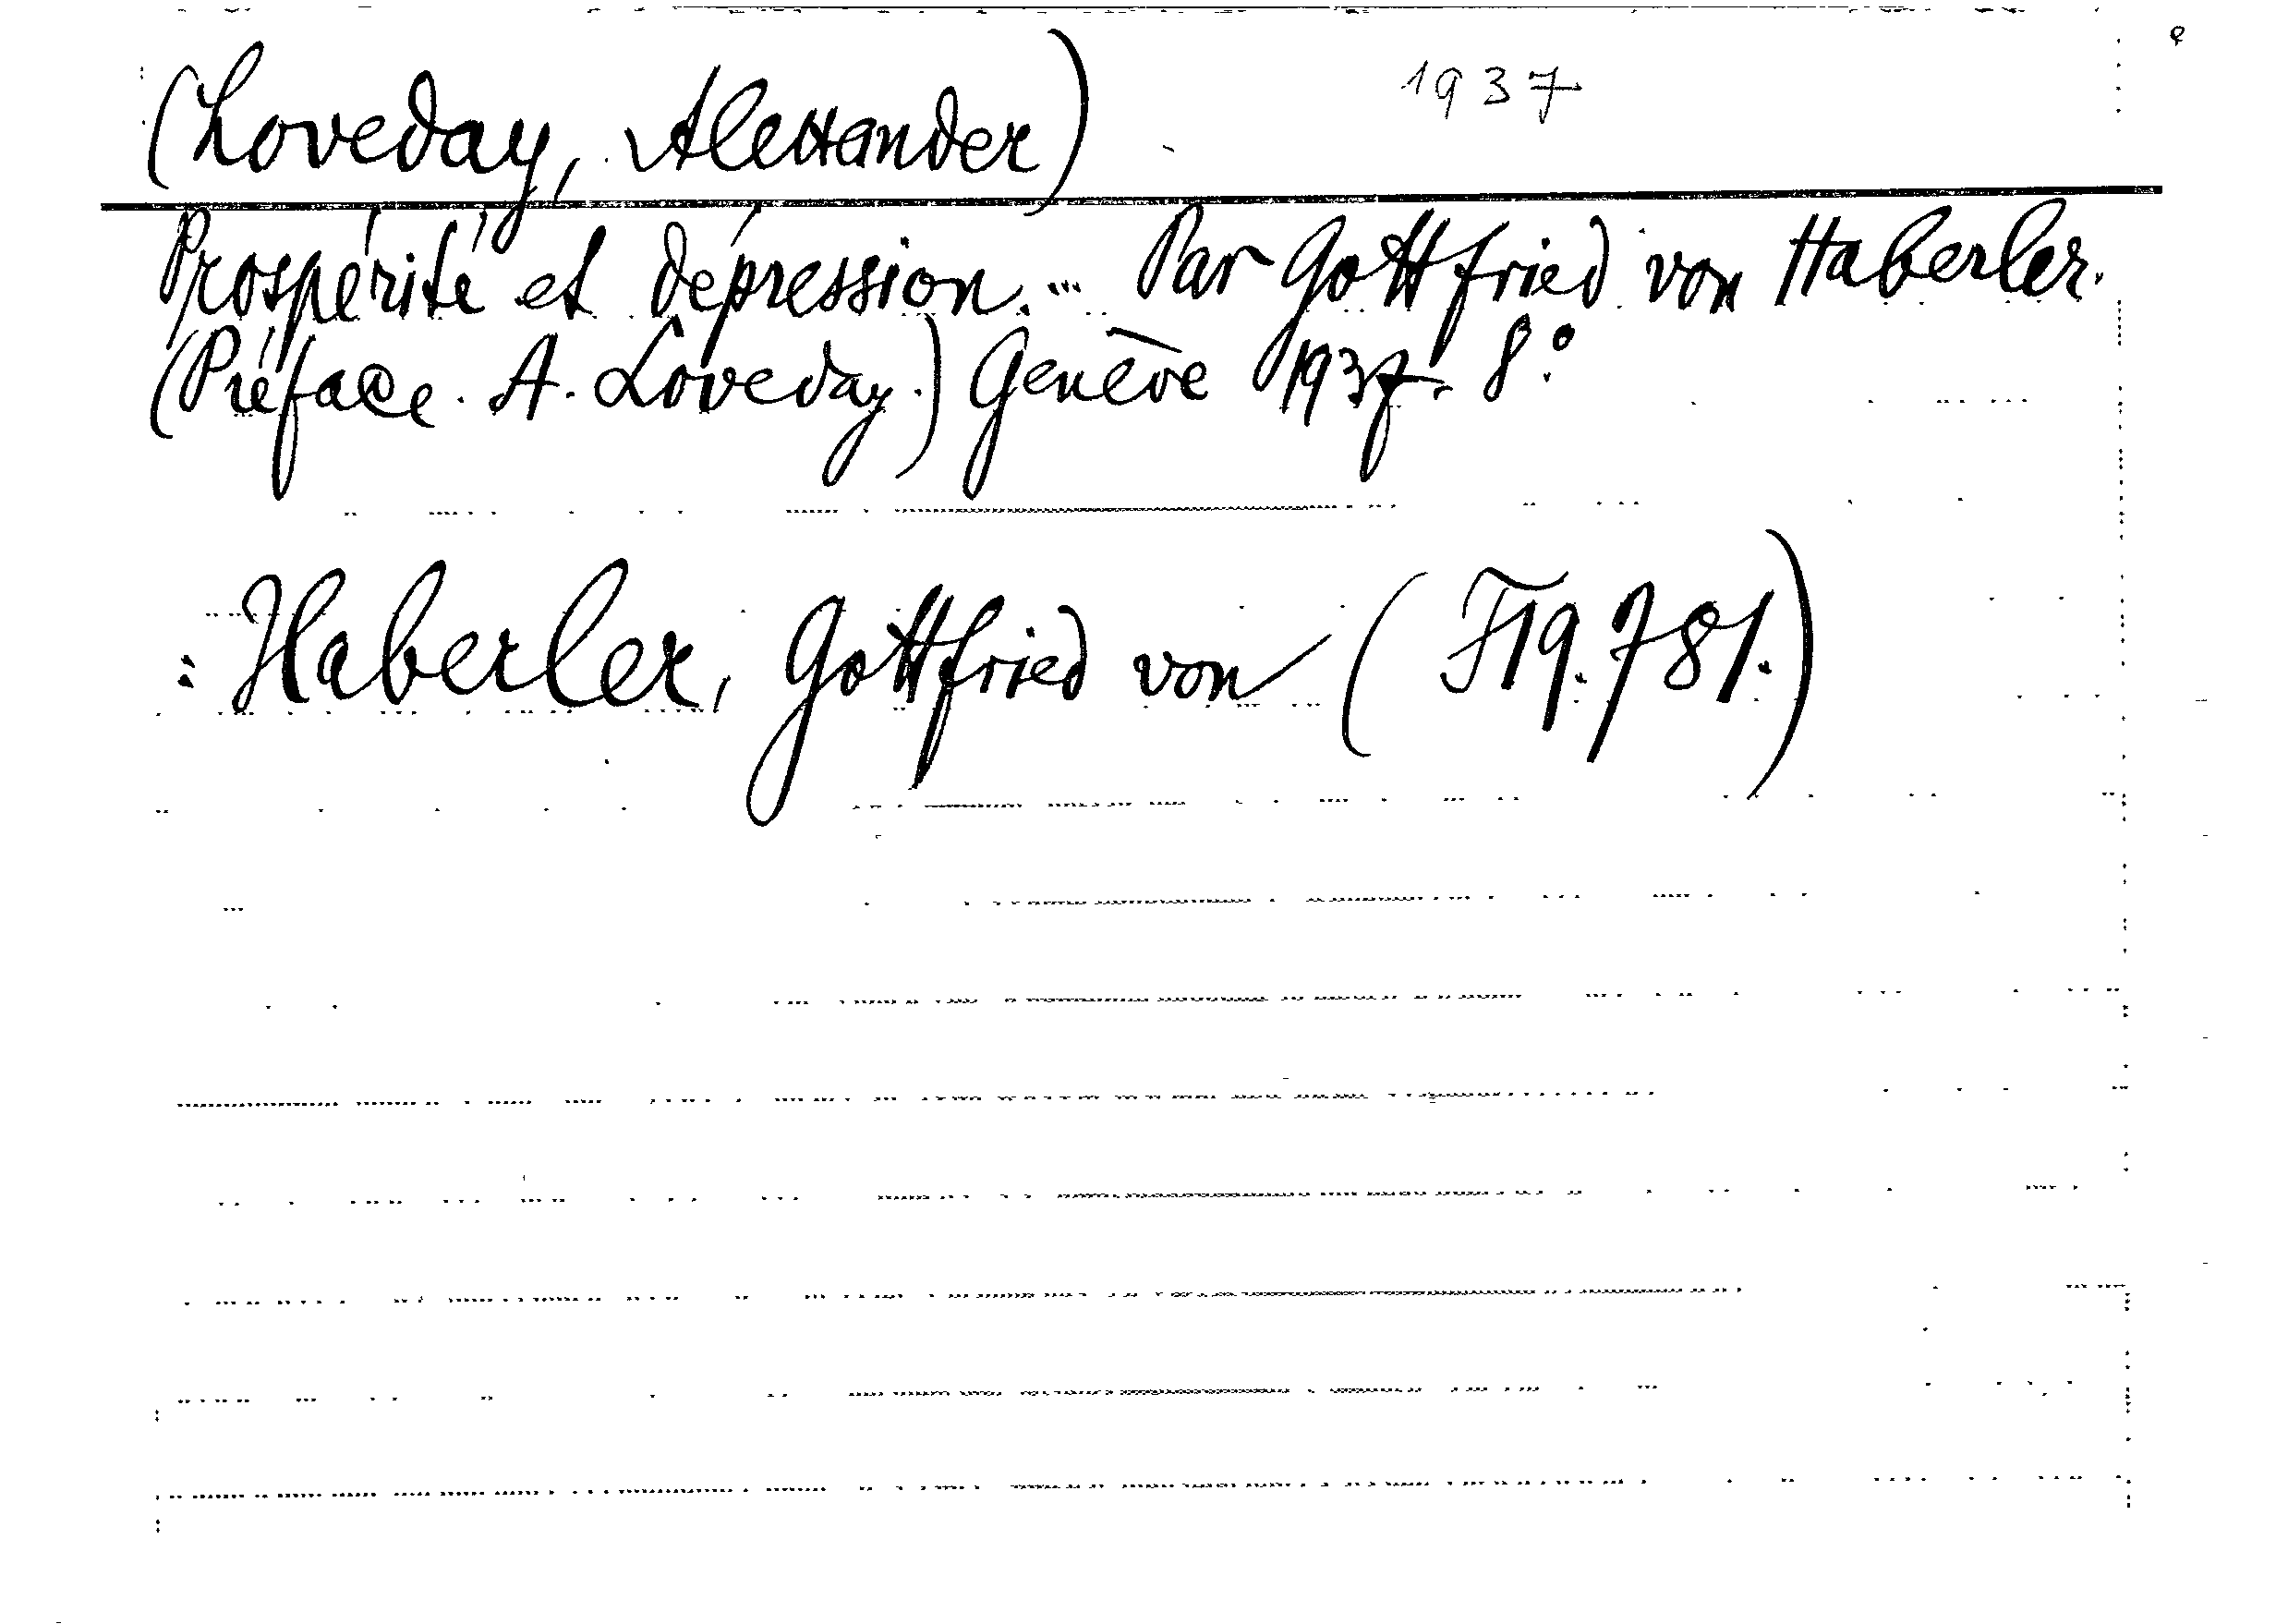 (Loveday, Alexander) 1937
Prospérité et dépression.... Par Gottfried von Haberler.
(Préface. A. Loveday.) Genève 1937. 8°.
: Haberler, Gottfried von (F19.781.)